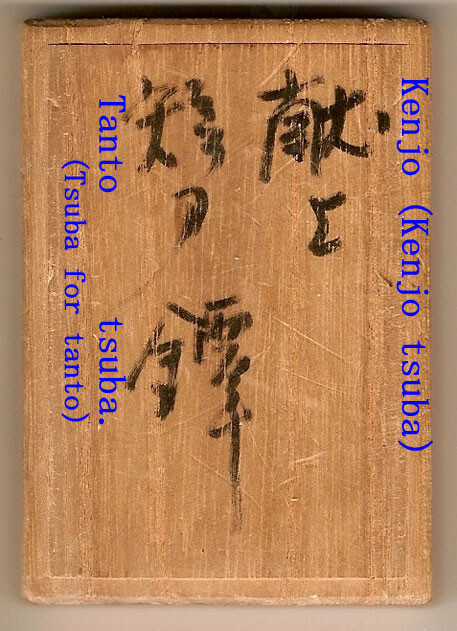 Kenjo (Kenjo tsuba)
献上
短刀 鐔
Tanto tsuba.
(Tsuba for tanto)